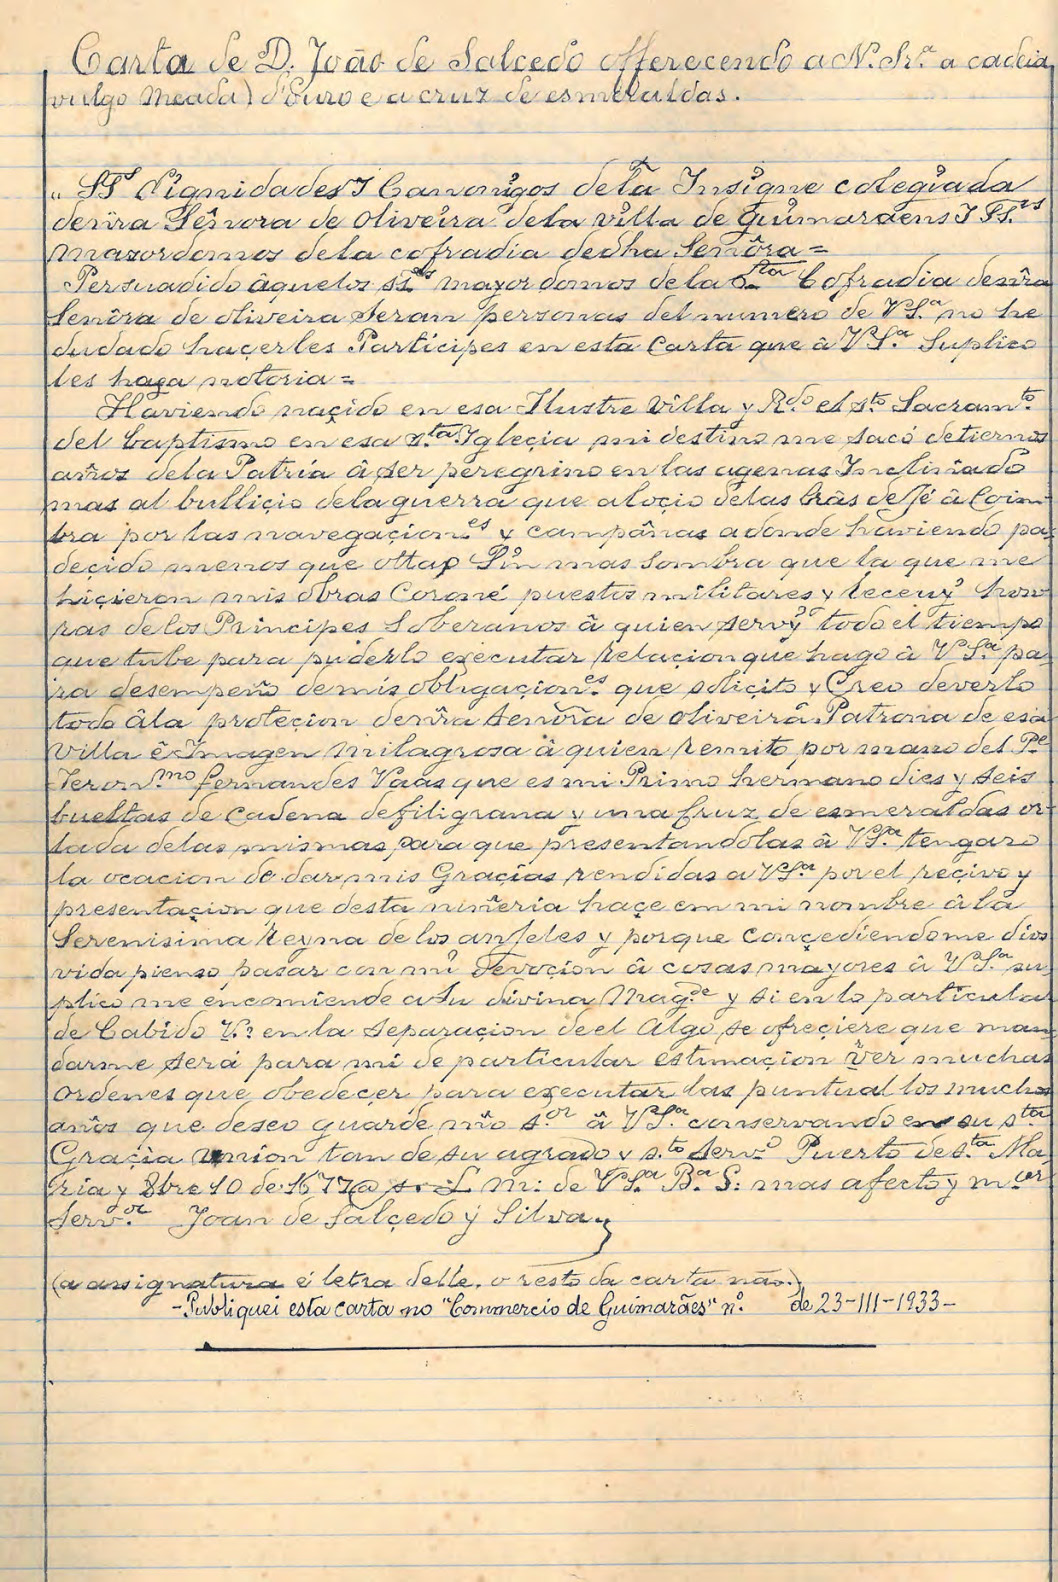 Carta de D. João de Salcedo offerecendo a N. Sr.ª a cadeia
vulgo Meada) d'Ouro e a cruz de esmeraldas.
„ SS.es Dignidades I Canonigos de la Insigne colegiada
de nra Señora de oliveira de la villa de guimaraens I SS.es
mazordomos de la cofradia de dha Señora =
Persuadido â que los SS.es mayordomos de la S.ta Cofradia de nra
Señora de oliveira seran personas del numero de VS.ª no he
dudado haçerles Participes en esta Carta que â VS.ª Suplico
les haga notoria =
Haviendo naçido en esa Ilustre Villa y R.do el s.to Sacram.to
del baptismo en esa s.ta Igleçia mi destino me sacó de tiernos
años de la Patria â ser peregrino en las agenas Inclinado
mas al bulliçio de la guerra que al oçio de las tras de Sé â Coim-
bra por las navegaçion.es y campâñas adonde haviendo pa-
deçido menos que otta Sin mas Sombra que la que me
hiçieron mis obras Coroné puestos militares y hon-
ras de los Principes Soberanos â quien servy todo el tiempo
que tube para puderlo executar relaçion que hago â VS.ª pa-
ra desempeño de mis obligaçion.es que soliçito y Creo deverlo
todo â la proteçion de nra señora de oliveira Patrona de esa
villa ê Imagen milagrosa â quien remito por mano del P.e
Jeron.mo fernandes Vaas que es mi Primo hermano dies y seis
bueltas de Cadena de filigrana y una Cruz de esmeraldas or-
lada de las mismas para que presentandolas â VS.ª tengaro
la ocacion de dar mis Gracias rendidas a VS.ª por el reçivo y
presentaçion que desta niñeria haçe em mi nombre â la
Serenisima Reyna de los anjeles y porque Conçediendome dios
vida pienso pasar con mi devoçion â cosas mayores â VS.ª su-
plico me encomiende a Su divina Mag.de y si en lo particular
de Cabido V.ª en la separaçion de el Algo se ofreçiere que man-
darme será para mi de particular estimaçion ver muchas
ordenes que obedeçer para executarlas puntual los muchos
años que deseo guarde nro s.or â VS.ª conservando en su s.ta
Graçia union tan de su agrado y s.to serv.o Puerto de s.ta Ma-
ria y 8bre 10 de 1677@ s. L. M: de VS.ª B.ª S: mas afecto y m.or
Serv.or Joan de Salçedo ÿ Silva
(a assignatura é letra delle. o resto da carta não.)
-Publiquei esta carta no "Commercio de Guimarães" n.º de 23-III-1933-